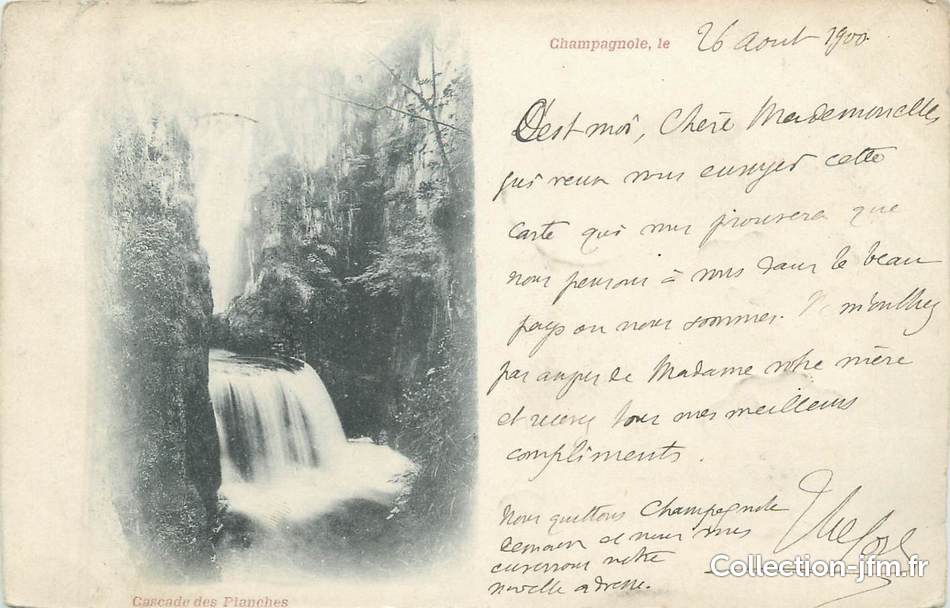 Champagnole, le 26 Aout 1900
C'est moi, Chère Mademoiselle,
qui veux vous envoyer cette
carte qui vous prouvera que
nous pensons à vous dans le beau
pays ou nous sommes. N'oubliez
pas auprès de Madame votre mère
et recevez tous mes meilleurs
compliments.
Nous quittons Champagnole
demain et nous vous
enverrons notre
nouvelle adresse.
Cascade des Planches
Collection-jfm.fr